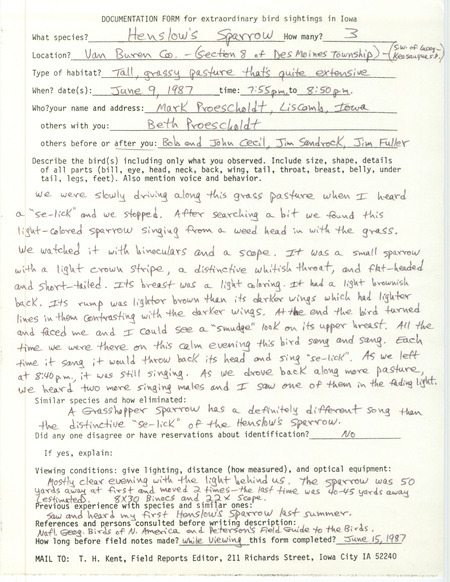 DOCUMENTATION FORM for extraordinary bird sightings in Iowa
What species? Henslow's Sparrow How many? 3
Location? Van Buren Co. - (Section 8 of Des Moines Township) - (S.W. of Lacey-Keosauqua S.P.)
Type of habitat? Tall, grassy pasture that's quite extensive
When? date(s): June 9, 1987 time: 7:55 p.m. to 8:50 p.m.
Who? your name and address: Mark Proescholdt, Liscomb, Iowa
others with you: Beth Proescholdt
others before or after you: Bob and John Cecil, Jim Sandrock, Jim Fuller
Describe the bird(s) including only what you observed. Include size, shape, details
of all parts (bill, eye, head, neck, back, wing, tail, throat, breast, belly, under
tail, legs, feet). Also mention voice and behavior.
We were slowly driving along this grass pasture when I heard
a "se-lick" and we stopped. After searching a bit we found this
light-colored sparrow singing from a weed head in with the grass.
We watched it with binoculars and a scope. It was a small sparrow
with a light crown stripe, a distinctive whitish throat, and flat-headed
and short-tailed. Its breast was a light coloring. It had a light brownish
back. Its rump was lighter brown than its darker wings which had lighter
lines in them contrasting with the darker wings. At the end the bird turned
and faced me and I could see a "smudge" look on its upper breast. All the
time we were there on this calm evening this bird sang and sang. Each
time it sang it would throw back its head and sing "se-lick". As we left
at 8:40 p.m., it was still singing. As we drove back along more pasture,
we heard two more singing males and I saw one of them in the fading light.
Similar species and how eliminated:
A Grasshopper Sparrow has a definitely different song than
the distinctive "se-lick" of the Henslow's Sparrow.
Did any one disagree or have reservations about identification? No
If yes, explain:
Viewing conditions: give lighting, distance (how measured), and optical equipment:
Mostly clear evening with the light behind us. The sparrow was 50
yards away at first and moved 2 times - the last time was 40-45 yards away
(estimated). 8X30 Binocs and 22x Scope.
Previous experience with species and similar ones:
Saw and heard my first Henslow's Sparrow last summer.
References and persons consulted before writing description:
Natl. Geog. Birds of N. America and Peterson's Field Guide to the Birds.
How long before field notes made? while viewing this form completed? June 15, 1987
MAIL TO: T. H. Kent, Field Reports Editor, 211 Richards Street, Iowa City IA 52240